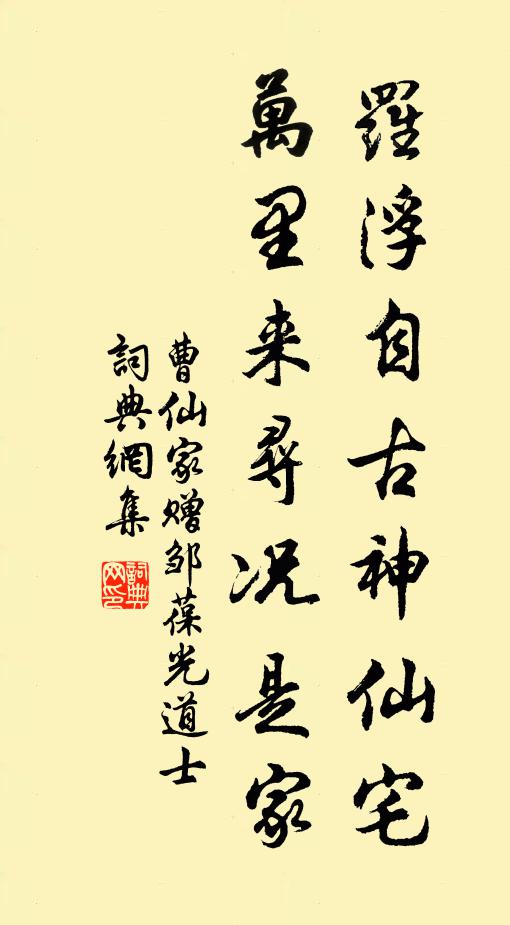 羅浮自古神仙宅
萬里来尋况是家
曹仙家赠邹葆光道士
詞典網集
詞典网印